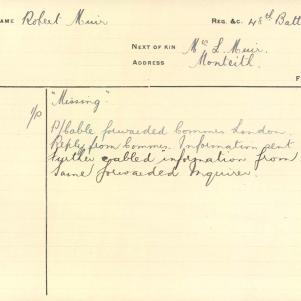 NAME Robert Muir REG. &C. 48th Batt
NEXT OF KIN Mrs L. Muir.
ADDRESS Monteith.
F
"Missing"
P/Cable forwarded Commrs London.
Reply from Commrs. Information sent
further cabled information from
same forwarded Inquirer.